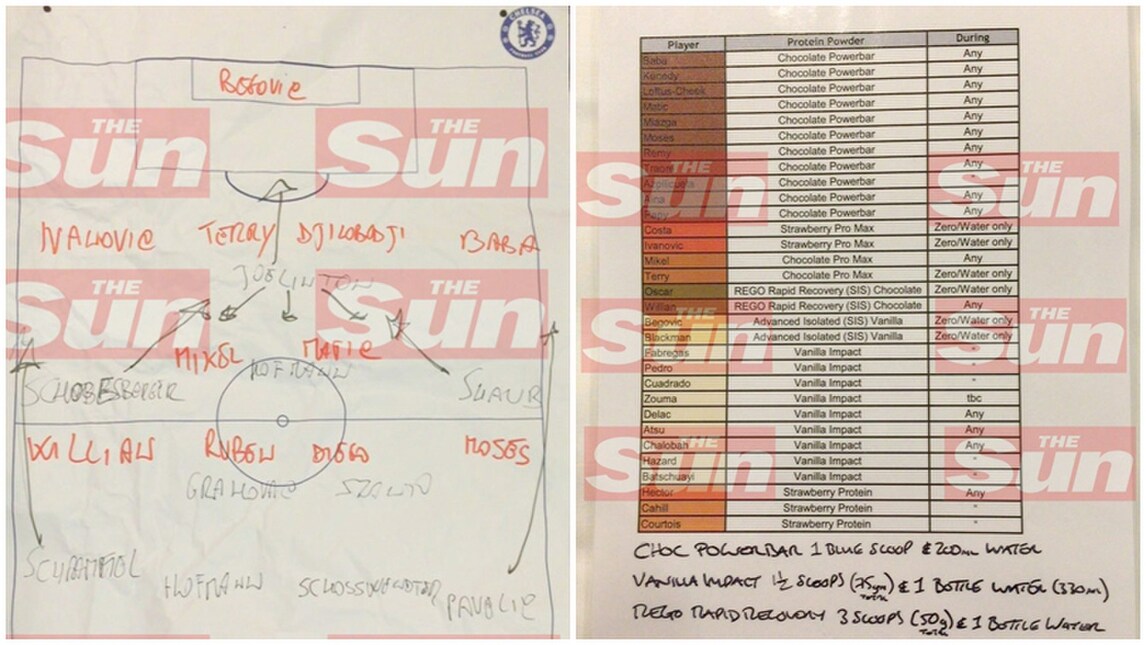 CHELSEA
FOOTBALL CLUB
BEGOVIC
THE THE
Sun Sun
IVANOVIC TERRY DJILOBODJI BABA
JOELINTON
THE THE
Sun Sun
MIKEL MATIC
HOFMANN
SCHOBESBERGER SHAUB
WILLIAN RUBEN DIEGO MOSES
THE THE
Sun Sun
GRAHOVAC SZANTO
SCHRAMMEL
HOFMANN
PAVALIC
Player Protein Powder During
Baba Chocolate Powerbar Any
Kenedy Chocolate Powerbar Any
Loftus-Cheek Chocolate Powerbar Any
Matic Chocolate Powerbar Any
Miazga Chocolate Powerbar Any
Moses Chocolate Powerbar Any
Remy Chocolate Powerbar Any
Traore Chocolate Powerbar Any
Azpilicueta Chocolate Powerbar "
Aina Chocolate Powerbar Any
Chocolate Powerbar Any
Costa Strawberry Pro Max Zero/Water only
Ivanovic Strawberry Pro Max Zero/Water only
Mikel Chocolate Pro Max Any
Terry Chocolate Pro Max Zero/Water only
Oscar REGO Rapid Recovery (SIS) Chocolate Zero/Water only
Willian REGO Rapid Recovery (SIS) Chocolate Any
Begovic Advanced Isolated (SIS) Vanilla Zero/Water only
Blackman Advanced Isolated (SIS) Vanilla Zero/Water only
Fabregas Vanilla Impact "
Pedro Vanilla Impact "
Cuadrado Vanilla Impact "
Zouma Vanilla Impact tbc
Delac Vanilla Impact Any
Atsu Vanilla Impact Any
Chalobah Vanilla Impact Any
Hazard Vanilla Impact "
Batschuayi Vanilla Impact "
Hector Strawberry Protein Any
Cahill Strawberry Protein "
Courtois Strawberry Protein "
THE THE
Sun Sun
THE THE
Sun Sun
THE THE
Sun Sun
CHOC POWERBAR 1 BLUE SCOOP & 200ml WATER
VANILLA IMPACT 1½ SCOOPS (75gm TOTAL) & 1 BOTTLE WATER (330ml)
REGO RAPID RECOVERY 3 SCOOPS (50g TOTAL) & 1 BOTTLE WATER